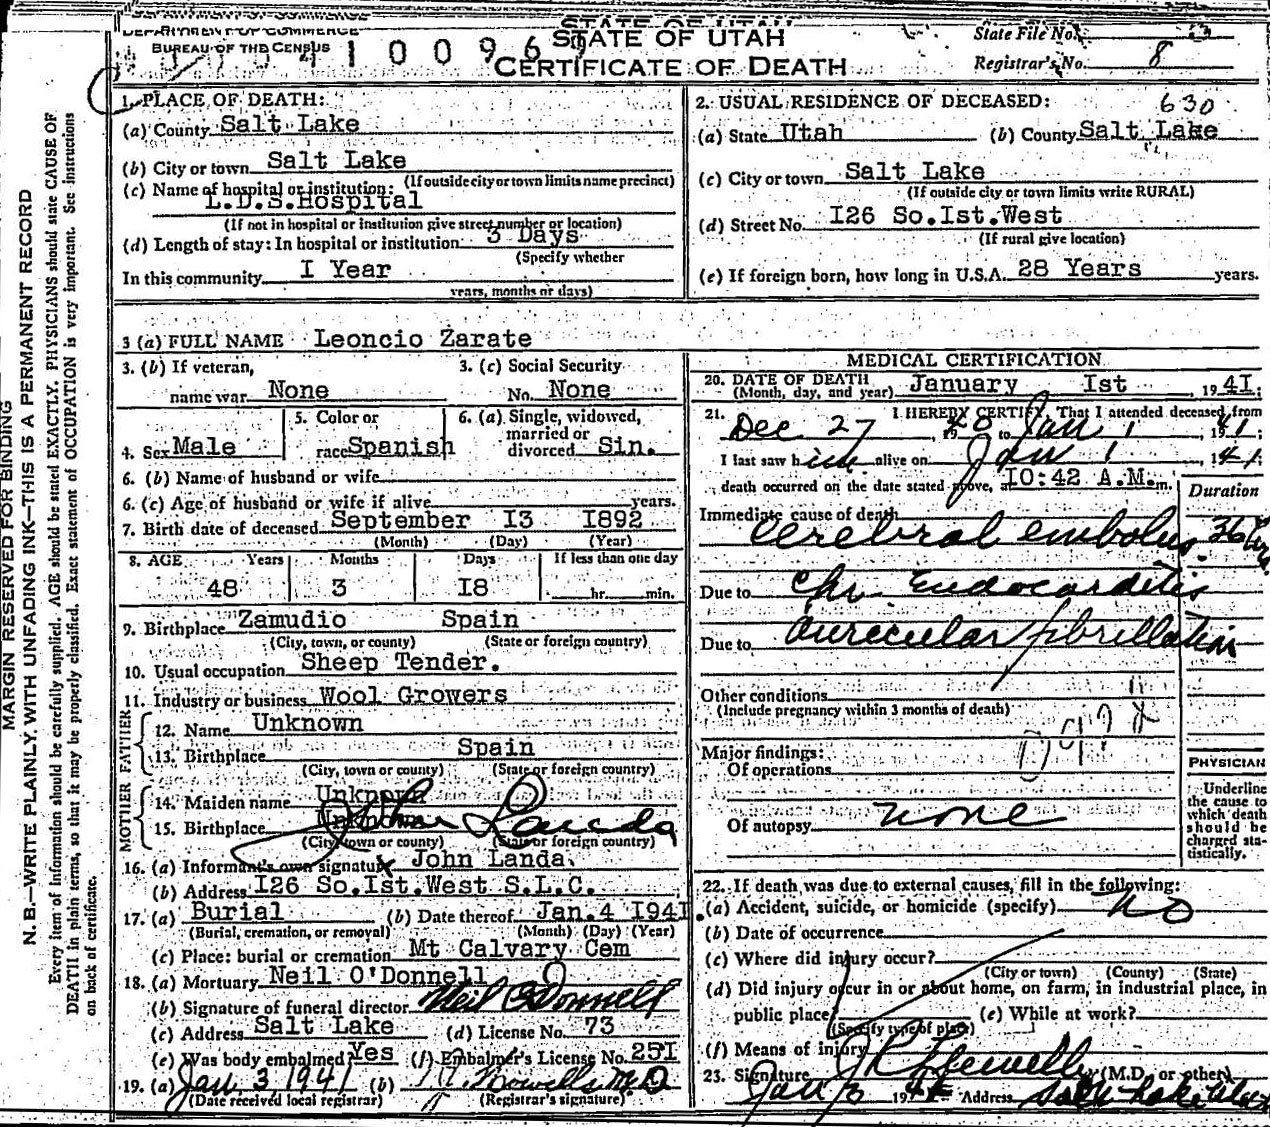 DEPARTMENT OF COMMERCE
BUREAU OF THE CENSUS
STATE OF UTAH
STATE OF UTAH
CERTIFICATE OF DEATH
State File No.
Registrar's No. 8
1. PLACE OF DEATH:
(a) County Salt Lake
(b) City or town Salt Lake
(If outside city or town limits name precinct)
(c) Name of hospital or institution:
L.D.S.Hospital
(If not in hospital or institution give street number or location)
(d) Length of stay: In hospital or institution 3 Days
(Specify whether
In this community I Year
years, months or days)
2. USUAL RESIDENCE OF DECEASED: 630
(a) State Utah (b) County Salt Lake
(c) City or town Salt Lake
(If outside city or town limits write RURAL)
(d) Street No. I26 So.Ist.West
(If rural give location)
(e) If foreign born, how long in U.S.A. 28 Years years.
3 (a) FULL NAME Leoncio Zarate
3. (b) If veteran,
name war None
3. (c) Social Security
No. None
4. Sex Male
5. Color or
race Spanish
6. (a) Single, widowed,
married or
divorced Sin.
6. (b) Name of husband or wife
6. (c) Age of husband or wife if alive years.
7. Birth date of deceased September I3 I892
(Month) (Day) (Year)
8. AGE Years Months Days If less than one day
48 3 I8 hr. min.
9. Birthplace Zamudio Spain
(City, town, or county) (State or foreign country)
10. Usual occupation Sheep Tender.
11. Industry or business Wool Growers
FATHER
12. Name Unknown
13. Birthplace Spain
(City, town or county) (State or foreign country)
MOTHER
14. Maiden name Unknown
15. Birthplace Unknown
John Landa
(City, town or county) (State or foreign country)
16. (a) Informant's own signature x John Landa.
(b) Address I26 So.Ist.West S.L.C.
17. (a) Burial (b) Date thereof Jan.4 I94I.
(Burial, cremation, or removal) (Month) (Day) (Year)
(c) Place: burial or cremation Mt Calvary Cem
18. (a) Mortuary Neil O'Donnell
(b) Signature of funeral director Neil O'Donnell
(c) Address Salt Lake (d) License No. 73
(e) Was body embalmed? Yes (f) Embalmer's License No. 25I
19. (a) Jan 3 1941 (b) M.D.
(Date received local registrar) (Registrar's signature)
MEDICAL CERTIFICATION
20. DATE OF DEATH January Ist , 194I.
(Month, day, and year)
21. I HEREBY CERTIFY, That I attended deceased from
Dec 27, 1940 to Jan 1, 1941;
I last saw him alive on Jan 1, 1941;
death occurred on the date stated above, at I0:42 A.M. m.
Duration
Immediate cause of death
Cerebral embolus. 36 hrs.
Due to Chr Endocarditis
Due to Auricular fibrillation
Other conditions
(Include pregnancy within 3 months of death)
Major findings:
Of operations
Of autopsy none
PHYSICIAN
Underline
the cause to
which death
should be
charged sta-
tistically.
22. If death was due to external causes, fill in the following:
(a) Accident, suicide, or homicide (specify) no
(b) Date of occurrence
(c) Where did injury occur?
(City or town) (County) (State)
(d) Did injury occur in or about home, on farm, in industrial place, in
public place? (e) While at work?
(Specify type of place)
(f) Means of injury
23. Signature (M.D. or other)
Jan 3 1941 Address Salt Lake Utah
MARGIN RESERVED FOR BINDING
N. B.—WRITE PLAINLY, WITH UNFADING INK—THIS IS A PERMANENT RECORD
Every item of information should be carefully supplied. AGE should be stated EXACTLY. PHYSICIANS should state CAUSE OF
DEATH in plain terms, so that it may be properly classified. Exact statement of OCCUPATION is very important. See instructions
on back of certificate.